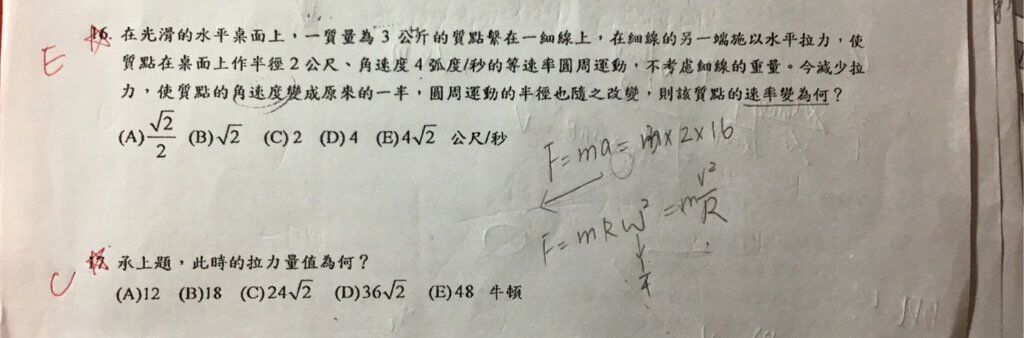 E 16. 在光滑的水平桌面上，一質量為 3 公斤的質點繫在一細線上，在細線的另一端施以水平拉力，使
質點在桌面上作半徑 2 公尺、角速度 4 弧度/秒的等速率圓周運動，不考慮細線的重量。今減少拉
力，使質點的角速度變成原來的一半，圓周運動的半徑也隨之改變，則該質點的速率變為何？
(A) √2/2 (B) √2 (C) 2 (D) 4 (E) 4√2 公尺/秒
F = ma = m×2×16
F = mRW² = m V²/R
1/4
C 17. 承上題，此時的拉力量值為何？
(A)12 (B)18 (C)24√2 (D)36√2 (E)48 牛頓